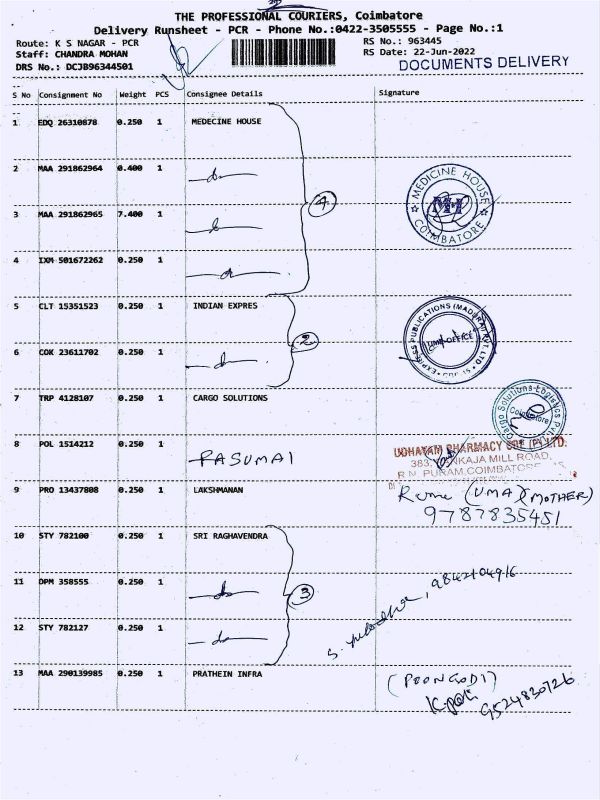 2
THE PROFESSIONAL COURIERS, Coimbatore
Delivery Runsheet - PCR - Phone No.:0422-3505555 - Page No.:1
Route: K S NAGAR - PCR
Staff: CHANDRA MOHAN
DRS No.: DCJB96344501
RS No.: 963445
RS Date: 22-Jun-2022
DOCUMENTS DELIVERY
S No Consignment No Weight PCS Consignee Details Signature
1 EDQ 26310878 0.250 1 MEDECINE HOUSE
2 MAA 291862964 0.400 1 -do-
3 MAA 291862965 7.400 1 -do-
4 IXM 501672262 0.250 1 -do-
4
MEDICINE HOUSE
MH
COIMBATORE
5 CLT 15351523 0.250 1 INDIAN EXPRES
6 COK 23611702 0.250 1 -do-
2
EXPRESS PUBLICATIONS (MADURAI) PVT. LTD.
7 TRP 4128107 0.250 1 CARGO SOLUTIONS
Cargo Solutions Logistics
Coimbatore
8 POL 1514212 0.250 1 PASUMAI
PHARMACY
MILL ROAD,
R.N. PURAM, COIMBATORE
9 PRO 13437808 0.250 1 LAKSHMANAN
(UMA) (MOTHER)
9787835451
10 STY 782100 0.250 1 SRI RAGHAVENDRA
11 DPM 358555 0.250 1 -do-
12 STY 782127 0.250 1 -do-
3
9842104916
13 MAA 290139985 0.250 1 PRATHEIN INFRA
(POONGODI)
9524830726